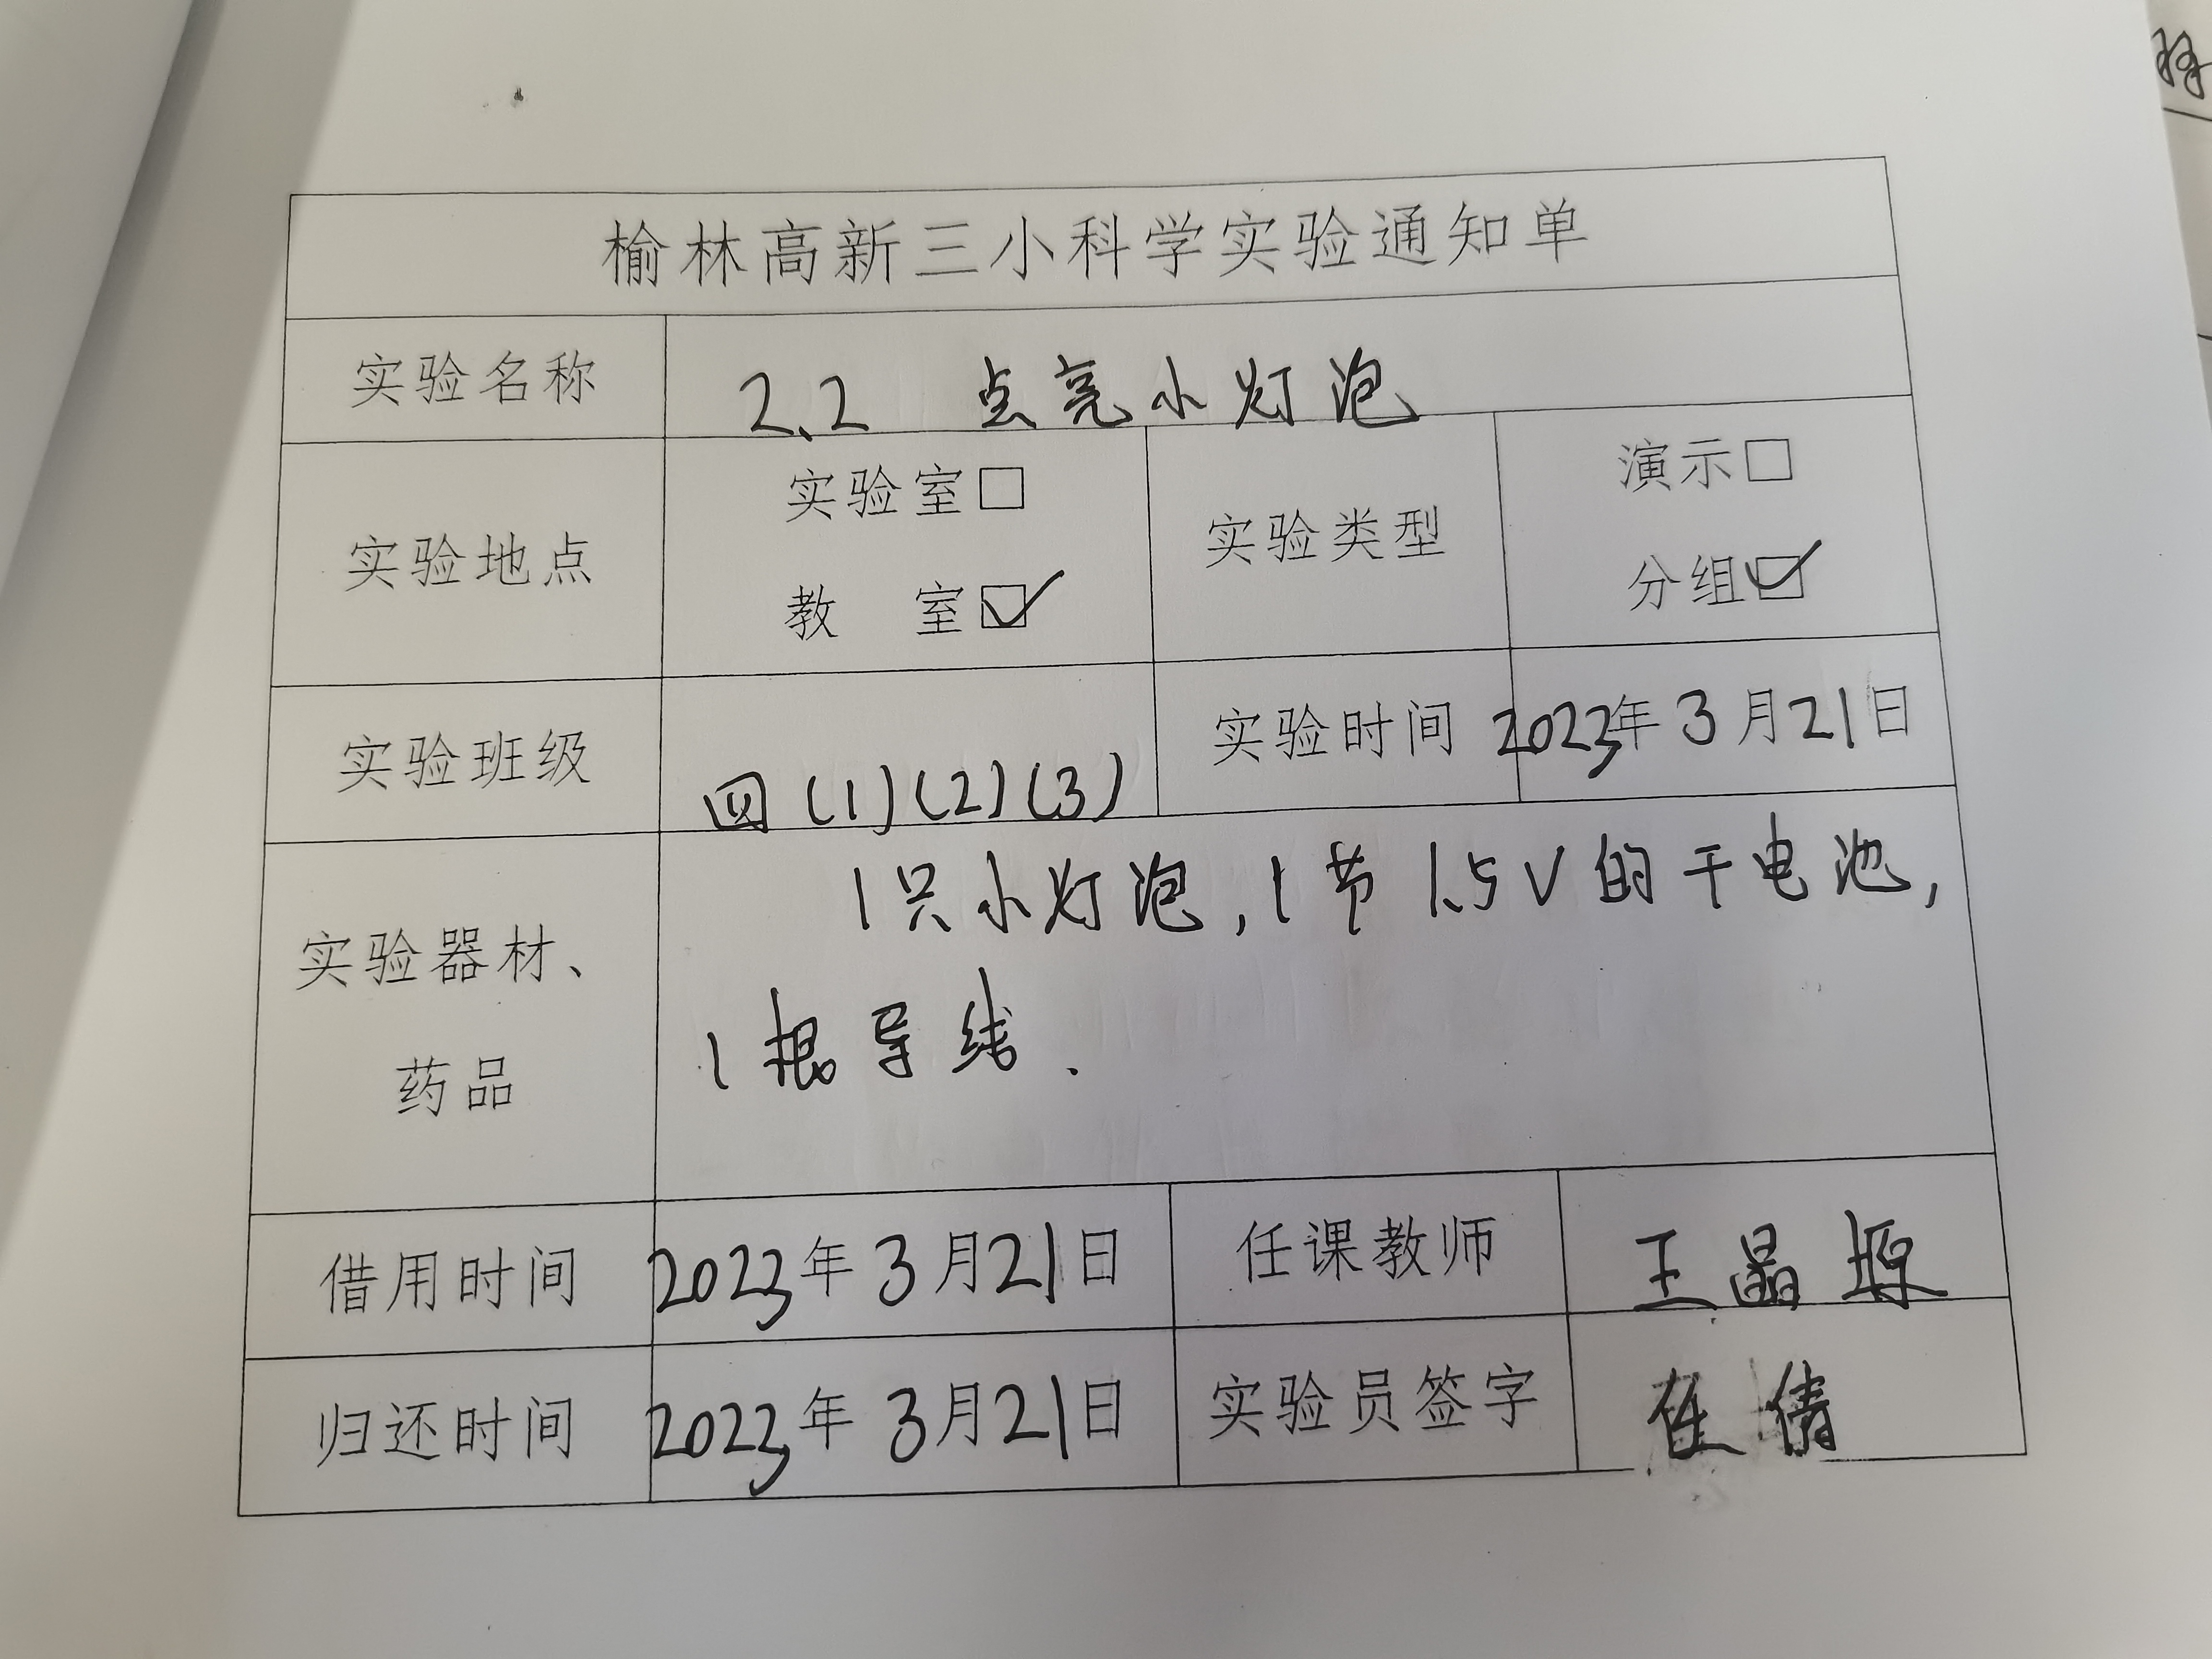 榆林高新三小科学实验通知单
实验名称 2.2 点亮小灯泡
实验地点 实验室□ 教 室☑ 实验类型 演示□ 分组☑
实验班级 四(1)(2)(3) 实验时间 2023年3月21日
实验器材、药品 1只小灯泡,1节1.5V的干电池,
1根导线.
借用时间 2023年3月21日 任课教师 王晶
归还时间 2023年3月21日 实验员签字 倩